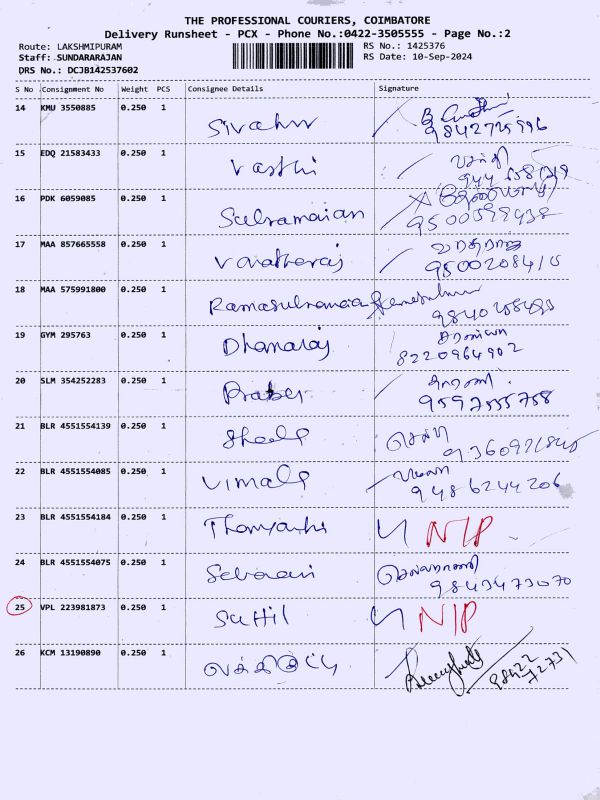 THE PROFESSIONAL COURIERS, COIMBATORE
Delivery Runsheet - PCX - Phone No.:0422-3505555 - Page No.:2
Route: LAKSHMIPURAM
RS No.: 1425376
Staff: SUNDARARAJAN
RS Date: 10-Sep-2024
DRS No.: DCJB142537602
S No Consignment No Weight PCS Consignee Details Signature
14 KMU 3550885 0.250 1
9842725996
15 EDQ 21583433 0.250 1 Vasthi
16 PDK 6059085 0.250 1
17 MAA 857665558 0.250 1 Varatharaj
வரதராஜ
9500208415
18 MAA 575991800 0.250 1
19 GYM 295763 0.250 1 Dhanaraj
8220964902
20 SLM 354252283 0.250 1
9597555758
21 BLR 4551554139 0.250 1
செல்வி
22 BLR 4551554085 0.250 1 Vimala
9486244206
23 BLR 4551554184 0.250 1 N/P
24 BLR 4551554075 0.250 1
9843473070
25 VPL 223981873 0.250 1 N/P
26 KCM 13190890 0.250 1
98422
72731